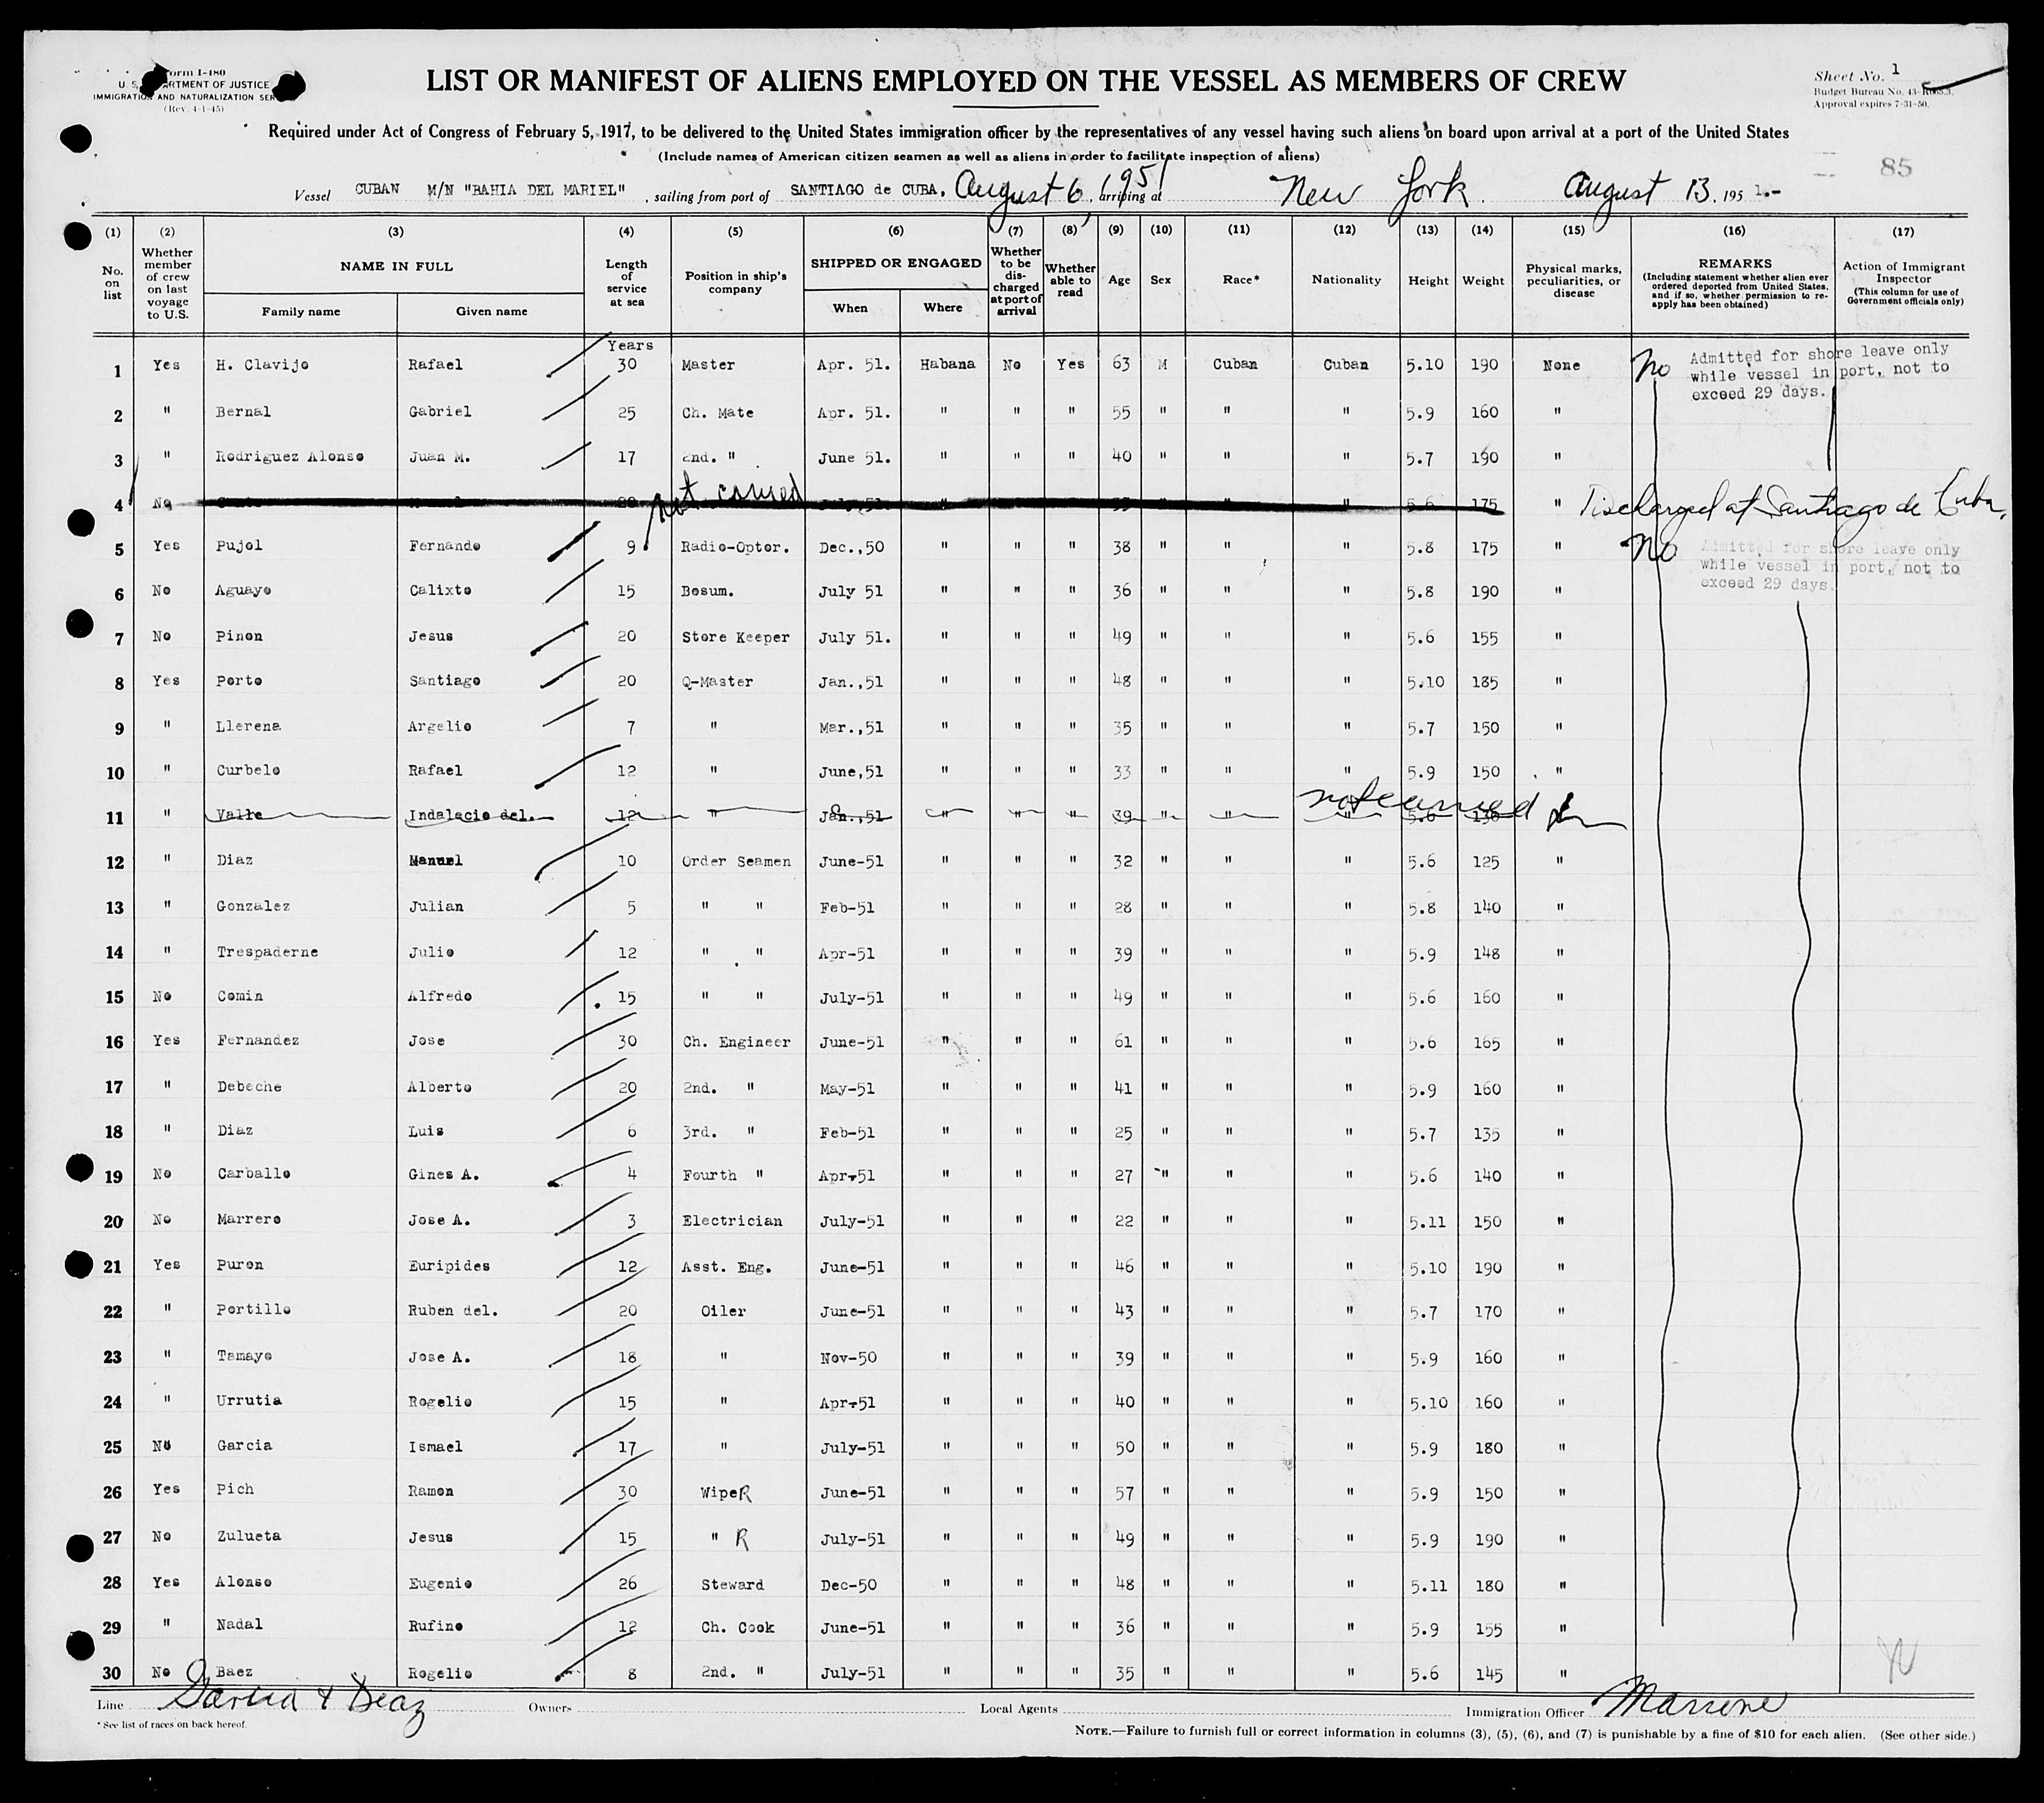 Form I-480
U. S. DEPARTMENT OF JUSTICE
IMMIGRATION AND NATURALIZATION SER
(Rev. 4-1-45)
LIST OR MANIFEST OF ALIENS EMPLOYED ON THE VESSEL AS MEMBERS OF CREW
Sheet No. 1
Budget Bureau No. 43-
Approval expires 7-31-50.
Required under Act of Congress of February 5, 1917, to be delivered to the United States immigration officer by the representatives of any vessel having such aliens on board upon arrival at a port of the United States
(Include names of American citizen seamen as well as aliens in order to facilitate inspection of aliens)
85
Vessel CUBAN M/N "BAHIA DEL MARIEL" , sailing from port of SANTIAGO de CUBA, August 6, 1951 arriving at New York. August 13, 195 1.-
(1) (2) (3) (4) (5) (6) (7) (8) (9) (10) (11) (12) (13) (14) (15) (16) (17)
No. on list
Whether member of crew on last voyage to U.S.
NAME IN FULL
Family name
Given name
Length of service at sea
Position in ship's company
SHIPPED OR ENGAGED
When
Where
Whether to be discharged at port of arrival
Whether able to read
Age
Sex
Race*
Nationality
Height
Weight
Physical marks, peculiarities, or disease
REMARKS
(Including statement whether alien ever ordered deported from United States, and if so, whether permission to re-apply has been obtained)
Action of Immigrant Inspector
(This column for use of Government officials only)
Years
1 Yes H. Clavijo Rafael 30 Master Apr. 51. Habana No Yes 63 M Cuban Cuban 5.10 190 None No
Admitted for shore leave only
while vessel in port, not to
exceed 29 days.
2 " Bernal Gabriel 25 Ch. Mate Apr. 51. " " " 55 " " " 5.9 160 "
3 " Rodriguez Alonso Juan M. 17 2nd. " June 51. " " " 40 " " " 5.7 190 "
4 No not carried July,51 " " " " " " 5.6 175 " Discharged at Santiago de Cuba.
5 Yes Pujol Fernando 9 Radio-Optor. Dec.,50 " " " 38 " " " 5.8 175 " No
Admitted for shore leave only
while vessel in port, not to
exceed 29 days.
6 No Aguayo Calixto 15 Bosum. July 51 " " " 36 " " " 5.8 190 "
7 No Pinon Jesus 20 Store Keeper July 51. " " " 49 " " " 5.6 155 "
8 Yes Porto Santiago 20 Q-Master Jan.,51 " " " 48 " " " 5.10 185 "
9 " Llerena Argelio 7 " Mar.,51 " " " 35 " " " 5.7 150 "
10 " Curbelo Rafael 12 " June,51 " " " 33 " " " 5.9 150 "
11 " Valle Indalecio del. 12 " Jan.,51 " " " 39 " " " 5.6 not carried
12 " Diaz Manuel 10 Order Seamen June-51 " " " 32 " " " 5.6 125 "
13 " Gonzalez Julian 5 " " Feb-51 " " " 28 " " " 5.8 140 "
14 " Trespaderne Julio 12 " " Apr-51 " " " 39 " " " 5.9 148 "
15 No Comin Alfredo 15 " " July-51 " " " 49 " " " 5.6 160 "
16 Yes Fernandez Jose 30 Ch. Engineer June-51 " " " 61 " " " 5.6 165 "
17 " Debeche Alberto 20 2nd. " May-51 " " " 41 " " " 5.9 160 "
18 " Diaz Luis 6 3rd. " Feb-51 " " " 25 " " " 5.7 135 "
19 No Carballo Gines A. 4 Fourth " Apr-51 " " " 27 " " " 5.6 140 "
20 No Marrero Jose A. 3 Electrician July-51 " " " 22 " " " 5.11 150 "
21 Yes Puron Euripides 12 Asst. Eng. June-51 " " " 46 " " " 5.10 190 "
22 " Portillo Ruben del. 20 Oiler June-51 " " " 43 " " " 5.7 170 "
23 " Tamayo Jose A. 18 " Nov-50 " " " 39 " " " 5.9 160 "
24 " Urrutia Rogelio 15 " Apr-51 " " " 40 " " " 5.10 160 "
25 No Garcia Ismael 17 " July-51 " " " 50 " " " 5.9 180 "
26 Yes Pich Ramon 30 WipeR June-51 " " " 57 " " " 5.9 150 "
27 No Zulueta Jesus 15 " R July-51 " " " 49 " " " 5.9 190 "
28 Yes Alonso Eugenio 26 Steward Dec-50 " " " 48 " " " 5.11 180 "
29 " Nadal Rufino 12 Ch. Cook June-51 " " " 36 " " " 5.9 155 "
30 No Baez Rogelio 8 2nd. " July-51 " " " 35 " " " 5.6 145 "
Line Garcia & Diaz Owners Local Agents Immigration Officer Marrone
* See list of races on back hereof.
NOTE.—Failure to furnish full or correct information in columns (3), (5), (6), and (7) is punishable by a fine of $10 for each alien. (See other side.)